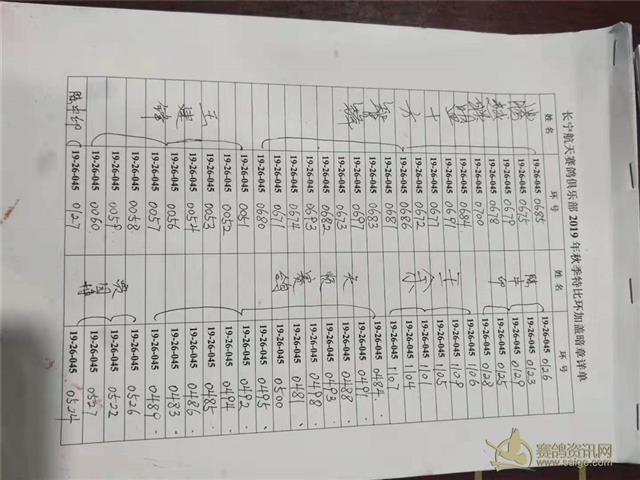 长宁航天赛鸽俱乐部 2019 年秋季特比环加盖暗章详单
姓名 环号 姓名 环号
19-26-045 0685 19-26-045 0126
19-26-045 0675 陈 19-26-045 0123
19-26-045 0679 中 19-26-045 0129
19-26-045 0678 印 19-26-045 0125
19-26-045 0700 19-26-045 0128
19-26-045 0684 19-26-045 1106
19-26-045 0691 王 19-26-045 1109
19-26-045 19-26-045 1105
19-26-045 0672 19-26-045 1101
19-26-045 0686 19-26-045 1104
19-26-045 19-26-045 1107
19-26-045 0683 19-26-045 0484
19-26-045 0697 19-26-045 0491
19-26-045 0673 19-26-045 0488
19-26-045 0682 19-26-045 0493
19-26-045 0693 赛 19-26-045 0498
19-26-045 0674 鸽 19-26-045 0481
19-26-045 0671 19-26-045 0500
19-26-045 0680 19-26-045 0495
19-26-045 0051 19-26-045 0492
19-26-045 0052 19-26-045 0494
王 19-26-045 0053 19-26-045 0485
建 19-26-045 0054 19-26-045 0486
19-26-045 0056 19-26-045 0483
锋 19-26-045 0057 19-26-045 0489
19-26-045 0058 19-26-045 0526
19-26-045 0059 国 19-26-045 0522
19-26-045 0060 19-26-045 0527
陈中印 19-26-045 0127 19-26-045 0524
赛鸽资讯网
www.saige.com